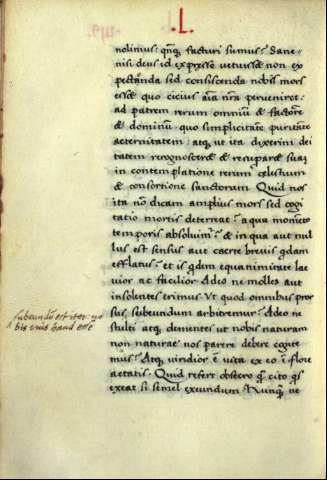 .L.
nolimus: qnq, facturi sumus? Sane
nisi deus id expresse vetuisset non ex
pectanda sed consciscenda nobis mors
esset quo cicius aīa nr̄a perveniret:
ad patrem rerum omniū & factorē
& dominū quo simplicitatē puritatē
aeternitatem: atq, ut ita dixerim dei
tatem recognosceret & recuparet suā
in contemplatione rerum celestium
& consortione sanctorum Quid nos
ita nō dicam amplius mors sed cogi
tatio mortis deterreat? a qua momēto
temporis absolvim? & in qua aut nul
lus est sensus aut caerte brevis qdam
efflatus? et is qdem equanimitate le
vior ac facilior Adeo ne molles aut
insolentes erimus Ut quod omnibus pror
sus, subeundum arbitremur? Adeo ne
stulti atq, dementes ut nobis naturam
non naturae nos parere debere cogite
mus? Atq, viridior ē vita ex eo ī flore
aetatis? Quid refert obsecro q̄ cito q̄s
exeat si semel exeundum Nunq̄ ne
subeundū est iter: no
bis vivis haud esse